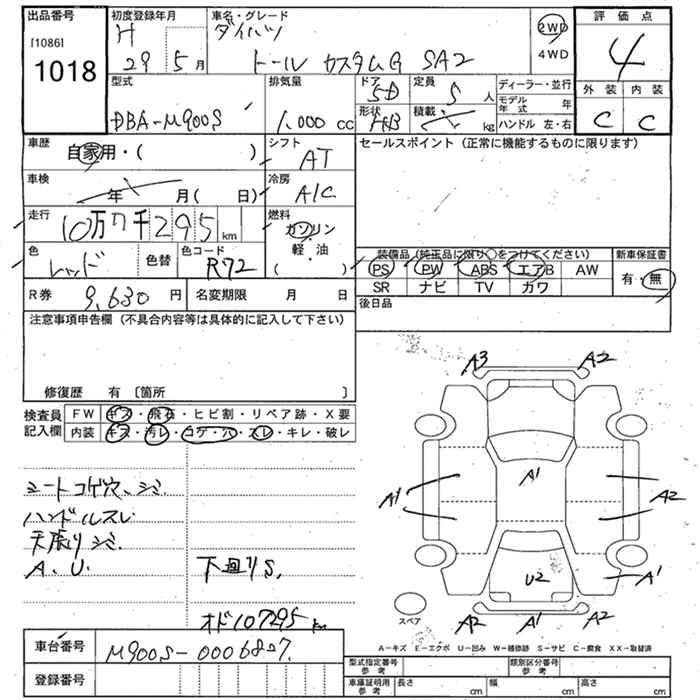 出品番号
[1086]
1018
初度登録年月
H 29 5月
車名・グレード
ダイハツ
トール カスタムG SA2
2WD
4WD
評価点
4
外装 内装
C C
型式
DBA-M900S
排気量
1.000 cc
ドア
5D
定員
5 人
形状
HB
積載
kg
ディーラー・並行
モデル年式 年
ハンドル 左・右
車歴
自家用・( )
シフト
AT
セールスポイント (正常に機能するものに限ります)
車検
年 月( 日)
冷房
A/C
走行
10万7千295 km
燃料
ガソリン
軽・油
( )
色
レッド
色替
色コード
R72
装備品 (純正品に限り○をつけてください)
PS PW ABS エアB AW
SR ナビ TV カワ
新車保証書
有・無
後日品
R券 9,630 円
名変期限 月 日
注意事項申告欄 (不具合内容等は具体的に記入して下さい)
修復歴 有 〔箇所 〕
検査員記入欄
FW キズ・飛石・ヒビ割・リペア跡・X要
内装 キズ・汚レ・コゲ・穴・スレ・キレ・破レ
シートコゲ穴、シミ.
ハンドルスレ
天張りシミ.
A.U.
下廻りS.
オド107295 km
A3 A2
A1
A1 A2
U2 A1
A2 A1 A2
スペア
A-キズ E-エクボ U-凹み W-補修跡 S-サビ C-腐食 XX-取替済
車台番号
M900S-0006827.
登録番号
型式指定番号 参考
類別区分番号 参考
車庫証明用 参考
長さ cm 幅 cm 高さ cm